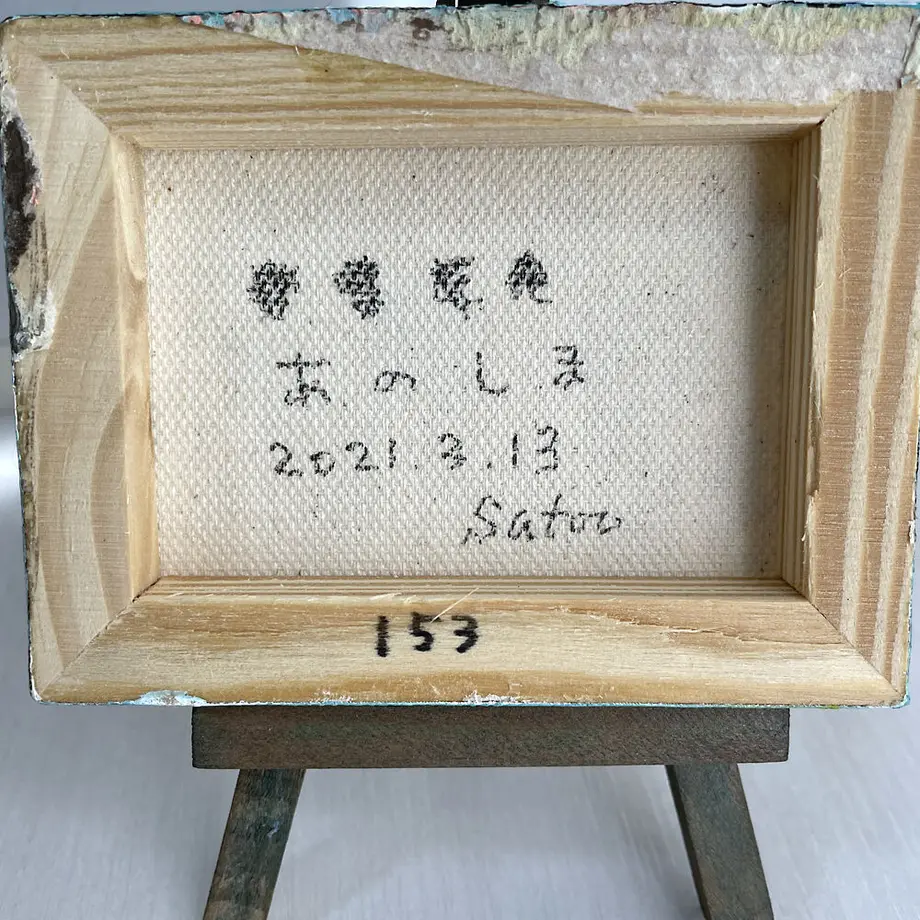 あのしま
2021.3.13
Satoo
153